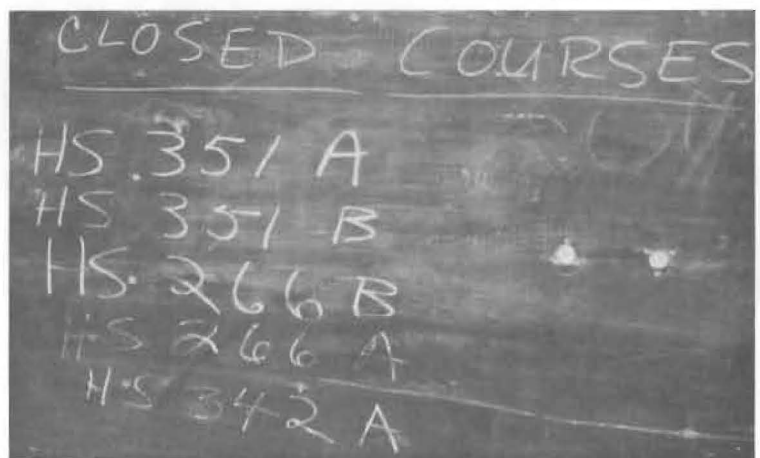 CLOSED COURSES
HS. 351 A
HS 351 B
HS. 266 B
HS 266 A
HS 342 A